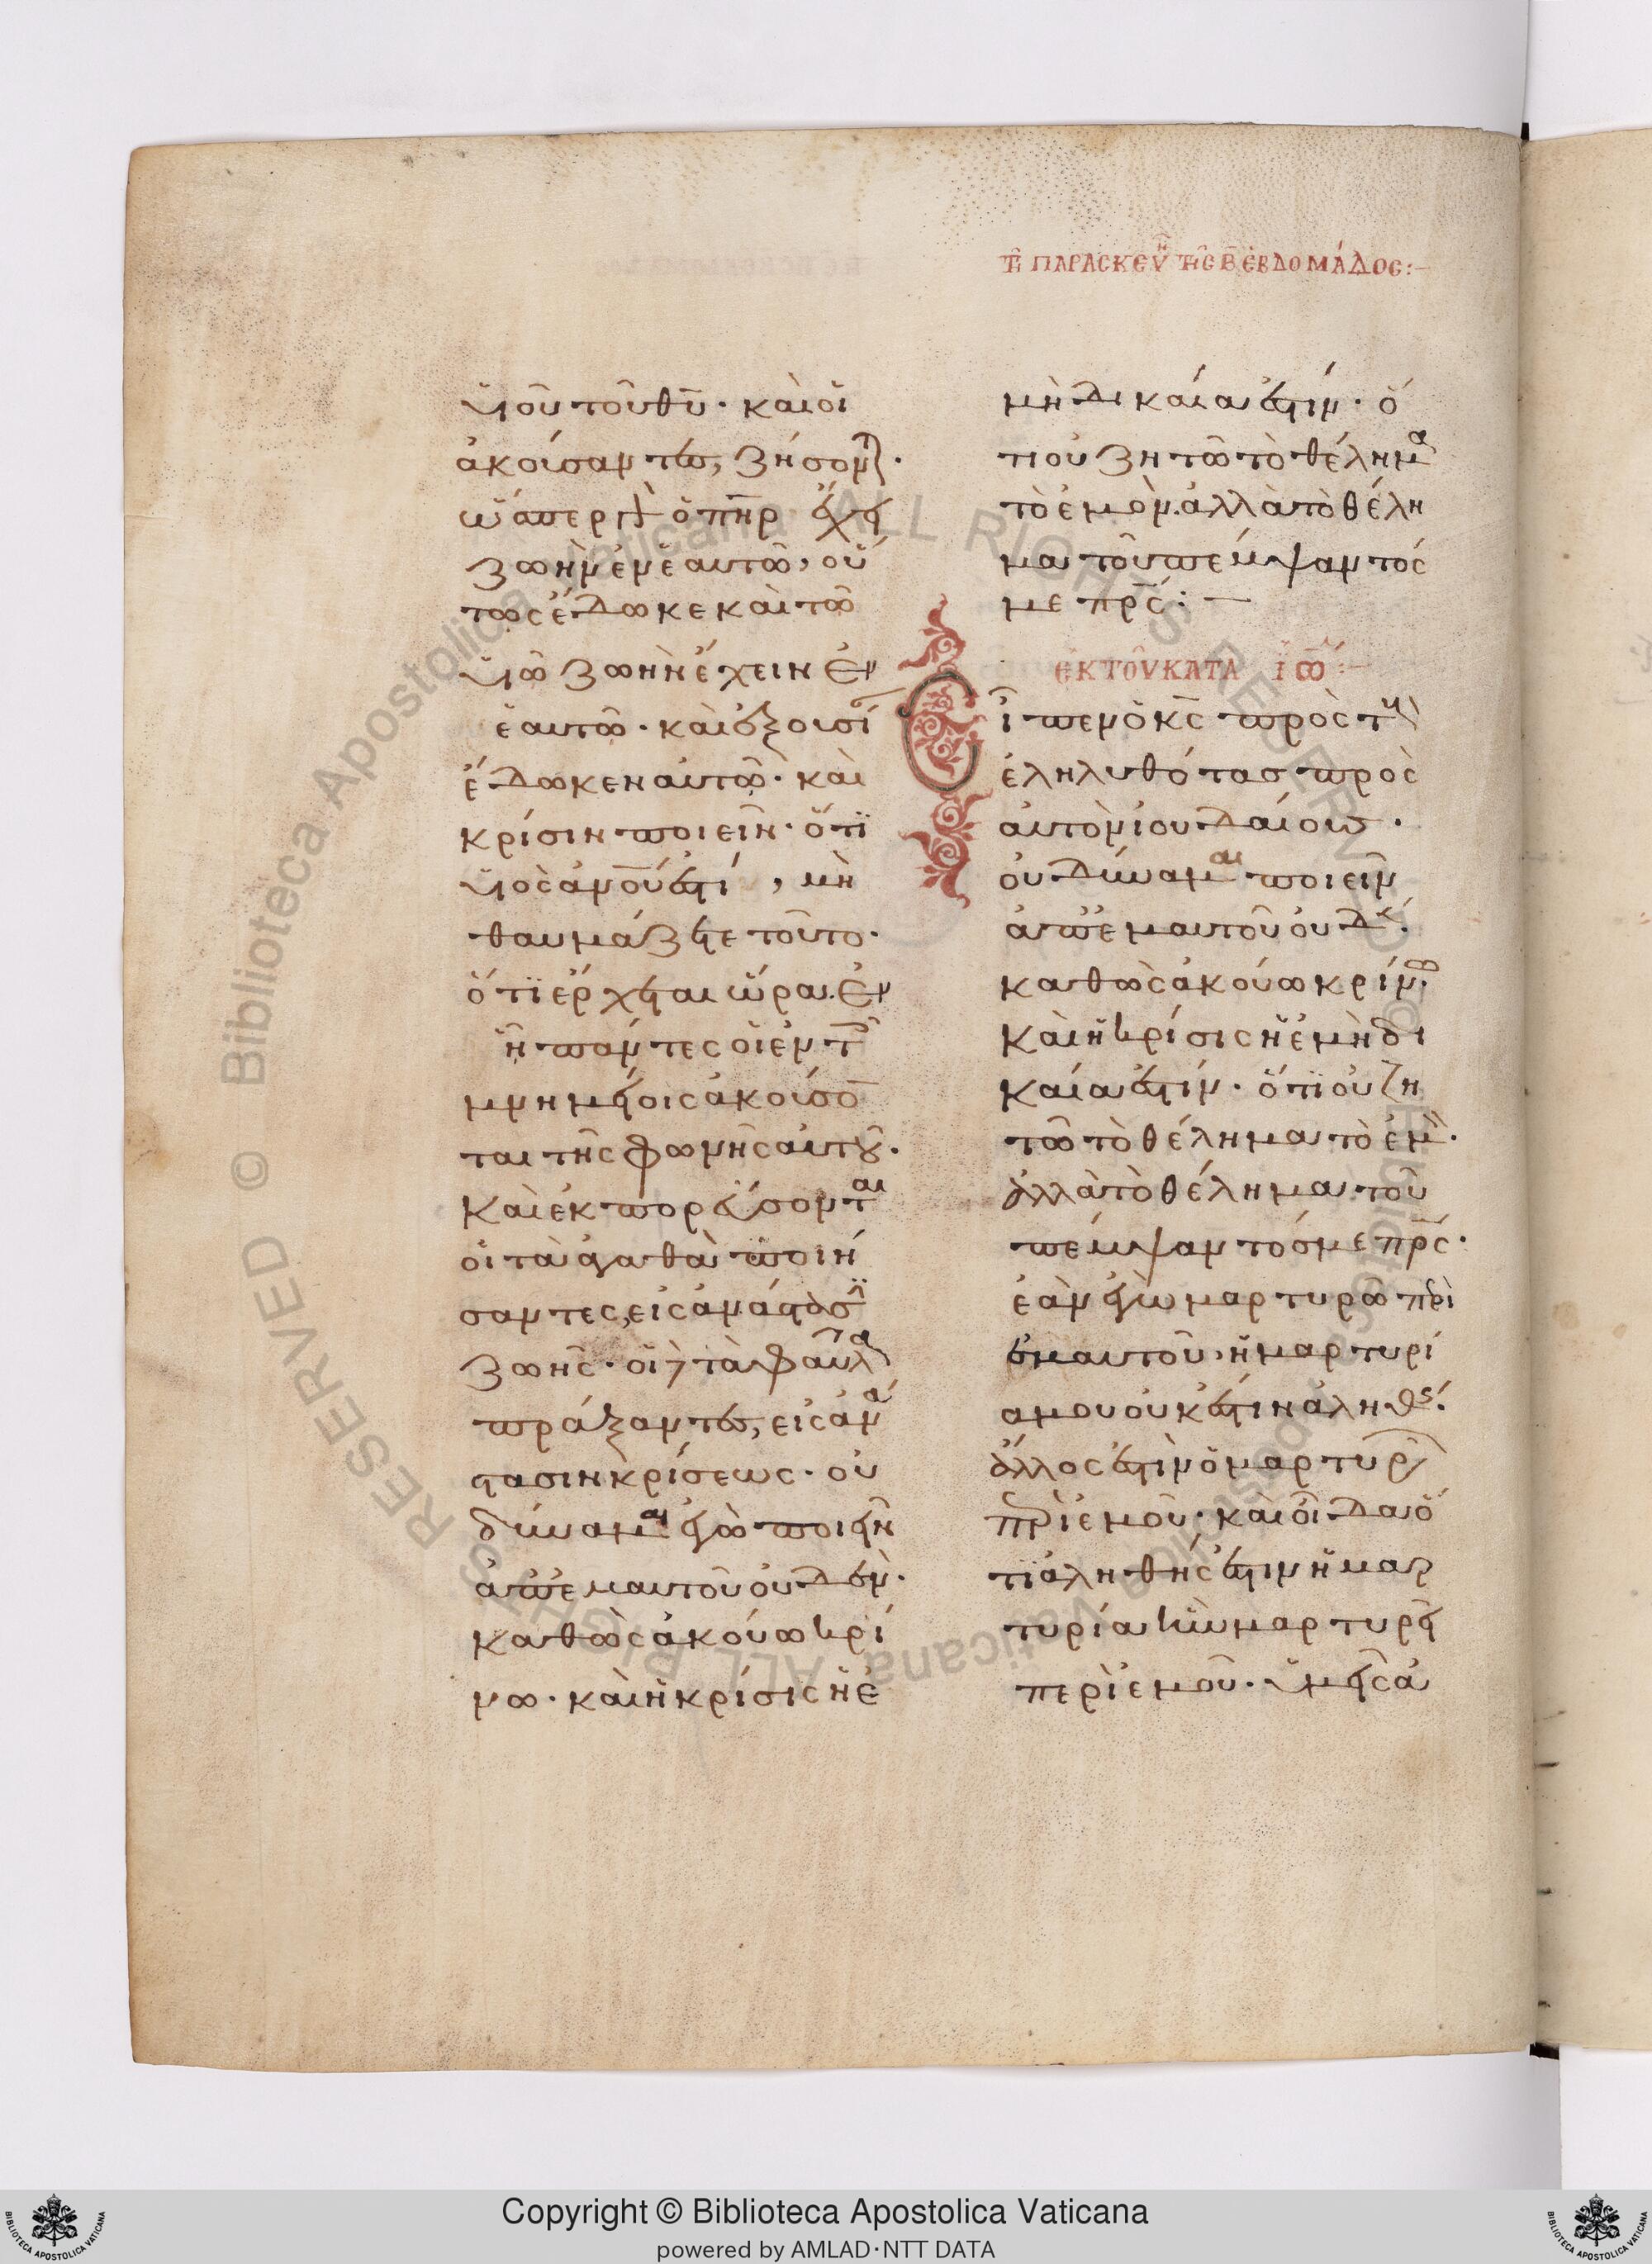 τῆ παρασκευῆ τῆς β̄ ἑβδομάδος:–
ϋἱοῦ τοῦ θυ̅· καὶ οἱ
ἀκούσαντες, ζήσοντ·
ὥσπερ γὰρ ὁ πη̅ρ ἔχει
ζωὴν ἐν ἑαυτῶ, οὕ
τως ἔδωκε καὶ τῶ
υἱῶ ζωὴν ἔχειν ἐν
ἑαυτῶ· καὶ ἐξουσί
ἔδωκεν αὐτῶ· καὶ
κρίσιν ποιεῖν· ὅτϊ
υἱὸς ἀν̅ου̅ ἐστί, μὴ
θαυμάζετε τοῦτο·
ὅτϊ ἔρχεται ὥρα. ἐν
ἧ πάντες οἱ ἐν τ
μνημείοις ἀκούσο
ται τῆς φωνῆς αὐτοῦ·
καὶ ἐκπορεύσονται
οἱ τὰ ἀγαθὰ ποιή
σαντες, εἰς ἀνάστασϊ
ζωῆς· οἱ δὲ τὰ φαῦλα
πράξαντες, εἰς ἀνά
στασιν κρίσεως· οὐ
δύναμαι ἐγὼ ποιεῖν
ἀπ' ἐμαυτοῦ οὐδέν·
καθὼς ἀκούω κρί
νω· καὶ ἡ κρίσις ἡ ἐ
μὴ δικαία ἐστίν· ὅ
τι οὐ ζητῶ τὸ θέλημα
τὸ ἐμὸν. ἀλλὰ τὸ θέλη
μα τοῦ πέμψαντός
με πρ̅ς: –
ἐκ τοῦ κατὰ ἰω:–
Εἶπεν ὁ κ̅ς πρὸς τοὺς
ἐληλυθότας πρὸς
αὐτὸν ἰουδαίους·
οὐ δύναμαι ποιεῖν
ἀπ' ἐμαυτοῦ οὐδέ.
καθὼς ἀκούω κρίνω·
καὶ ἡ κρίσις ἡ ἐμὴ δι
καία ἐστίν· ὅτϊ οὐ ζη
τῶ τὸ θέλημα τὸ ἐμὸ·
ἀλλὰ τὸ θέλημα τοῦ
πέμψαντός με πρ̅ς·
ἐὰν ἐγὼ μαρτυρῶ περὶ
ἐμαυτοῦ, ἡ μαρτυρί
α μου οὐκ ἔστιν ἀληθς.
ἄλλος ἐστὶν ὁ μαρτυρῶ
περὶ ἐμοῦ· καὶ οἶδα ὅ
τϊ ἀληθής ἐστιν ἡ μαρ
τυρία ἣν μαρτυρεῖ
περὶ ἐμοῦ· ὑμεῖς ἀ